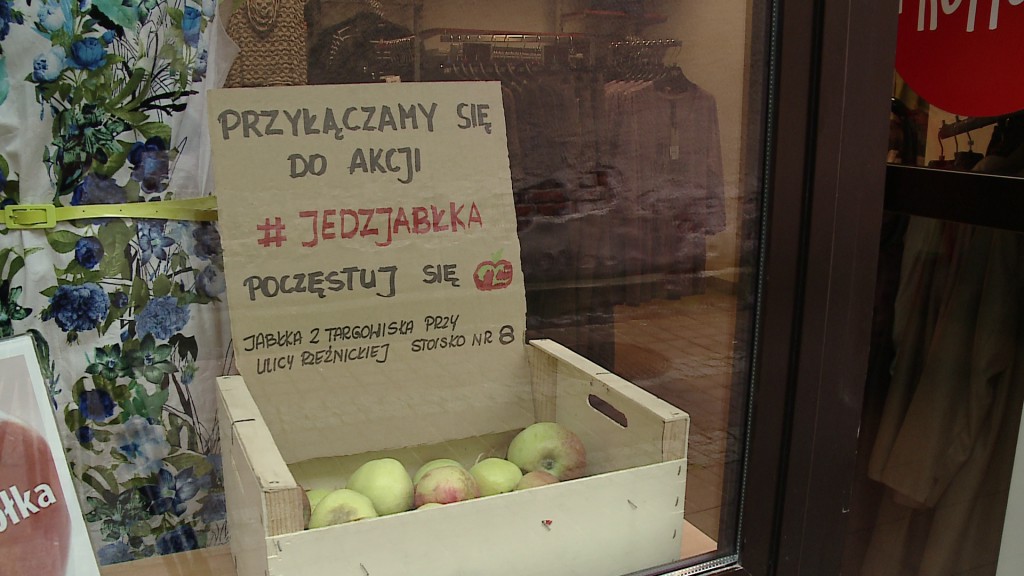 PRZYŁĄCZAMY SIĘ
DO AKCJI
# JEDZJABŁKA
POCZĘSTUJ SIĘ
JABŁKA Z TARGOWISKA PRZY
ULICY RZEŹNICKIEJ STOISKO NR 8